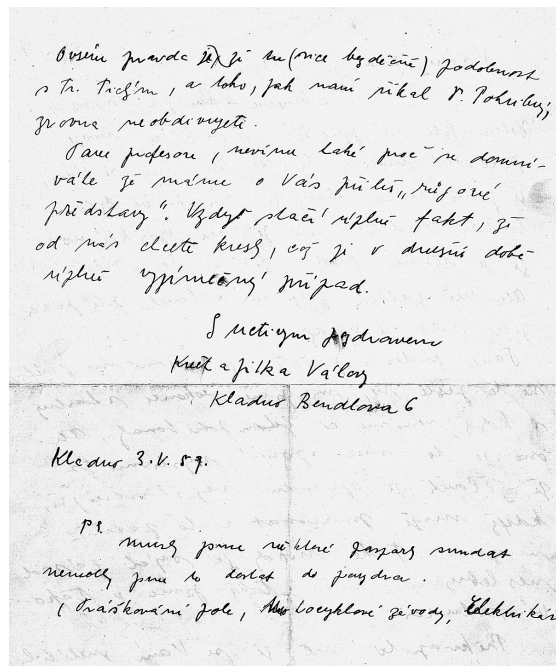 Ovšem pravda je, že tu (sice bezděčně) podobnost
s tr. Tichým, a toho, jak nám říkal p. Pohribný,
zrovna neobdivujete.
Pane profesore, nevíme také proč se domní-
váte že máme o Vás příliš „růžové
představy". Vždyť stačí úplně fakt, že
od nás chcete kresby, což je v dnešní době
úplně vyjímečný případ.
S uctivým pozdravem
Květa a Jitka Válovy
Kladno Bendlova 6
Kladno 3.V.59.
PS.
musely jsme některé paspary sundat
nemohly jsme to dostat do pouzdra.
(Práškování pole, Motocyklové závody, Elektrikář